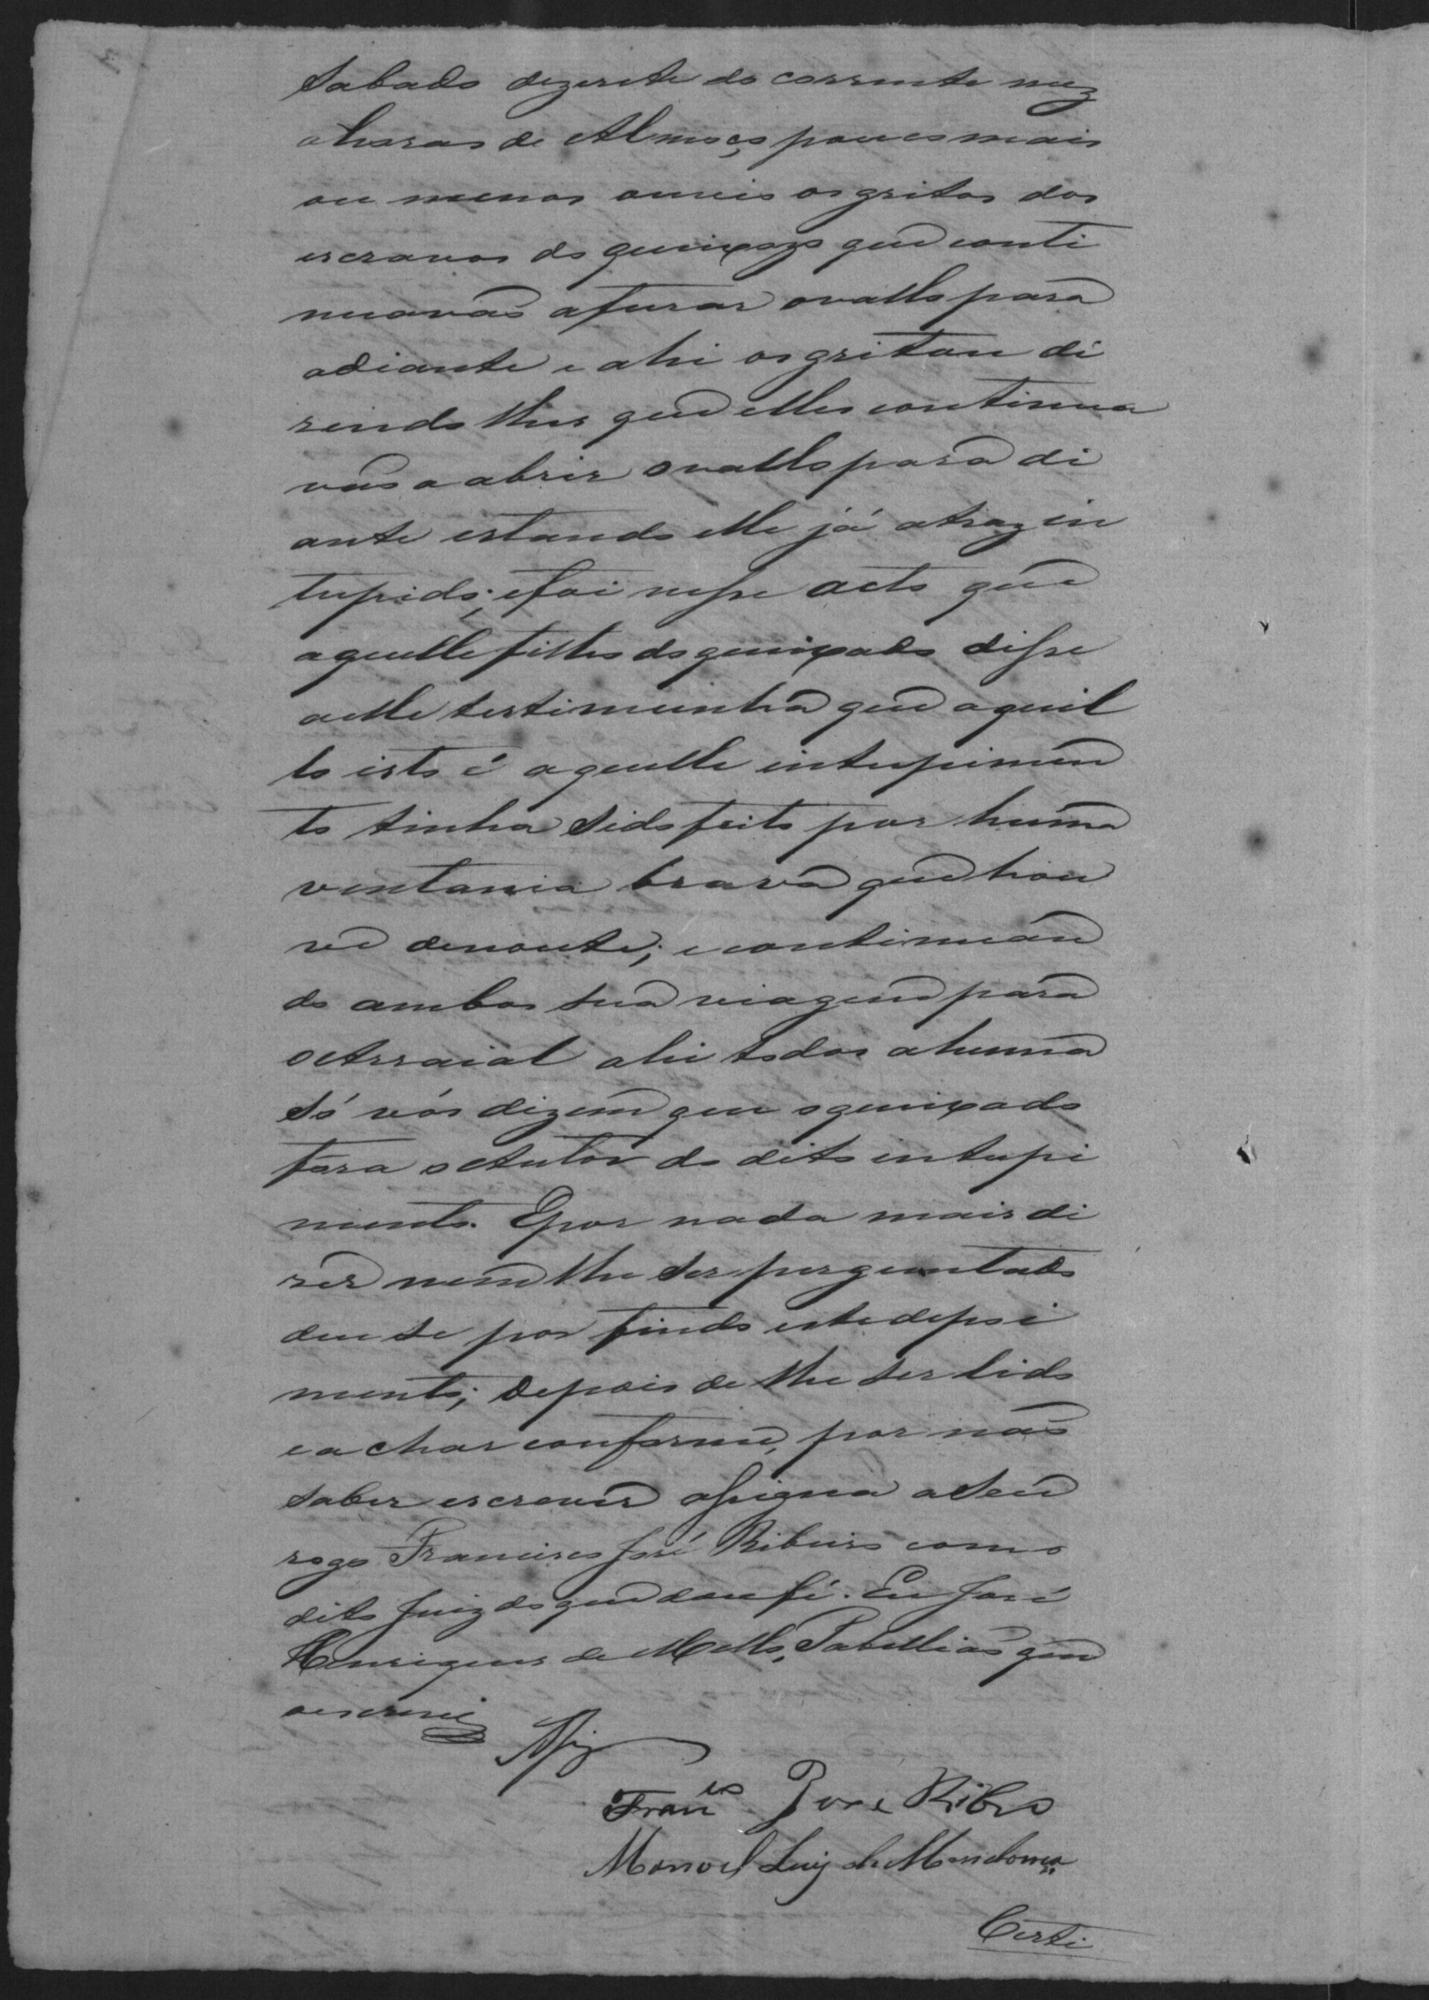 Sabado dezesete do corrente mez
ahoras de Almoço, pouco mais
ou menos ouvio os gritos dos
escravos do queixozo que conti
nuavão afurar ovallo para
adiante e ahi os gritou di
zendo lhes que elles continua
vão a abrir ovallo para di
ante estando elle já atraz in
tupido; e foi nesse acto que
aquelle filho do queixado disse
aelle testimunha que aquil
lo isto é aquelle intupimen
to tinha sido feito por huma
ventania brava que hou
ve denoute; e continuan
do ambos sua viagem para
o Arraial ahi todos ahuma
só vós dizem que oqueixado
fora o Autor do dito intupi
mento. E por nada mais di
zer nem lhe ser perguntado
deu se por findo este depoi
mento; depois de lhe ser lido
e achar conforme, por não
saber escrever assigna a seu
rogo Francisco José Ribeiro com o
dito Juiz do que dou fé. Eu José
Henriques de Mello, Tabellião que
oescrevi
Franco José Ribro
Manoel Luiz de Mendonça
Certi